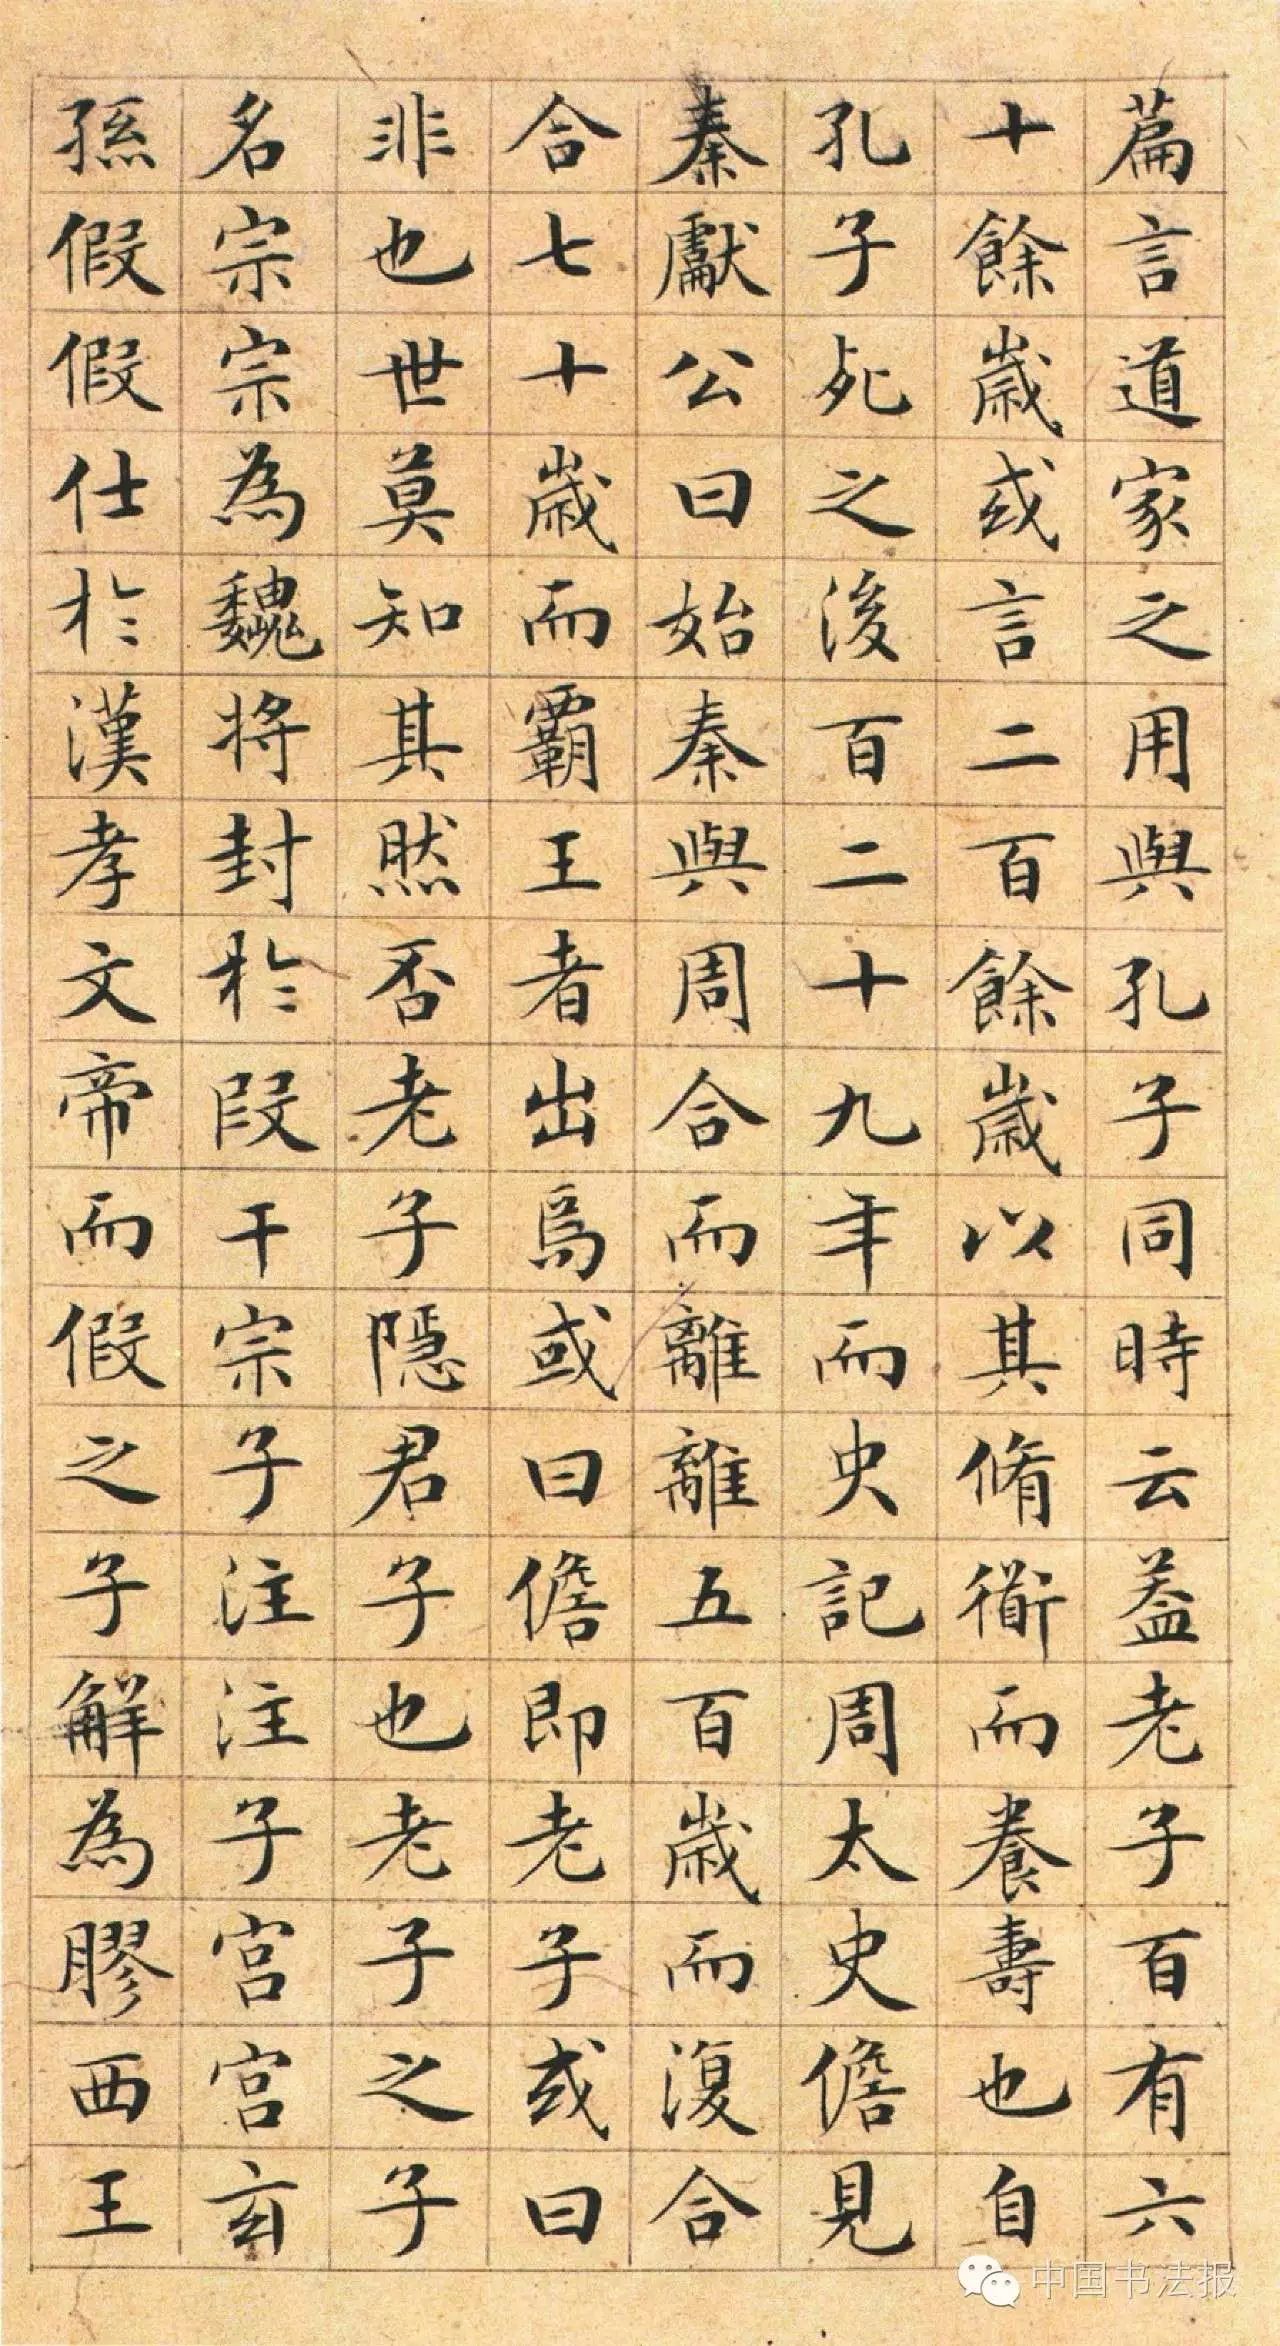 篇言道家之用與孔子同時云蓋老子百有六
十餘歲或言二百餘歲以其脩衜而養壽也自
孔子死之後百二十九年而史記周太史儋見
秦獻公曰始秦與周合而離離五百歲而復合
合七十歲而霸王者出焉或曰儋即老子或曰
非也世莫知其然否老子隱君子也老子之子
名宗宗為魏將封於段干宗子注注子宮宮玄
孫假假仕於漢孝文帝而假之子解為膠西王
中国书法报